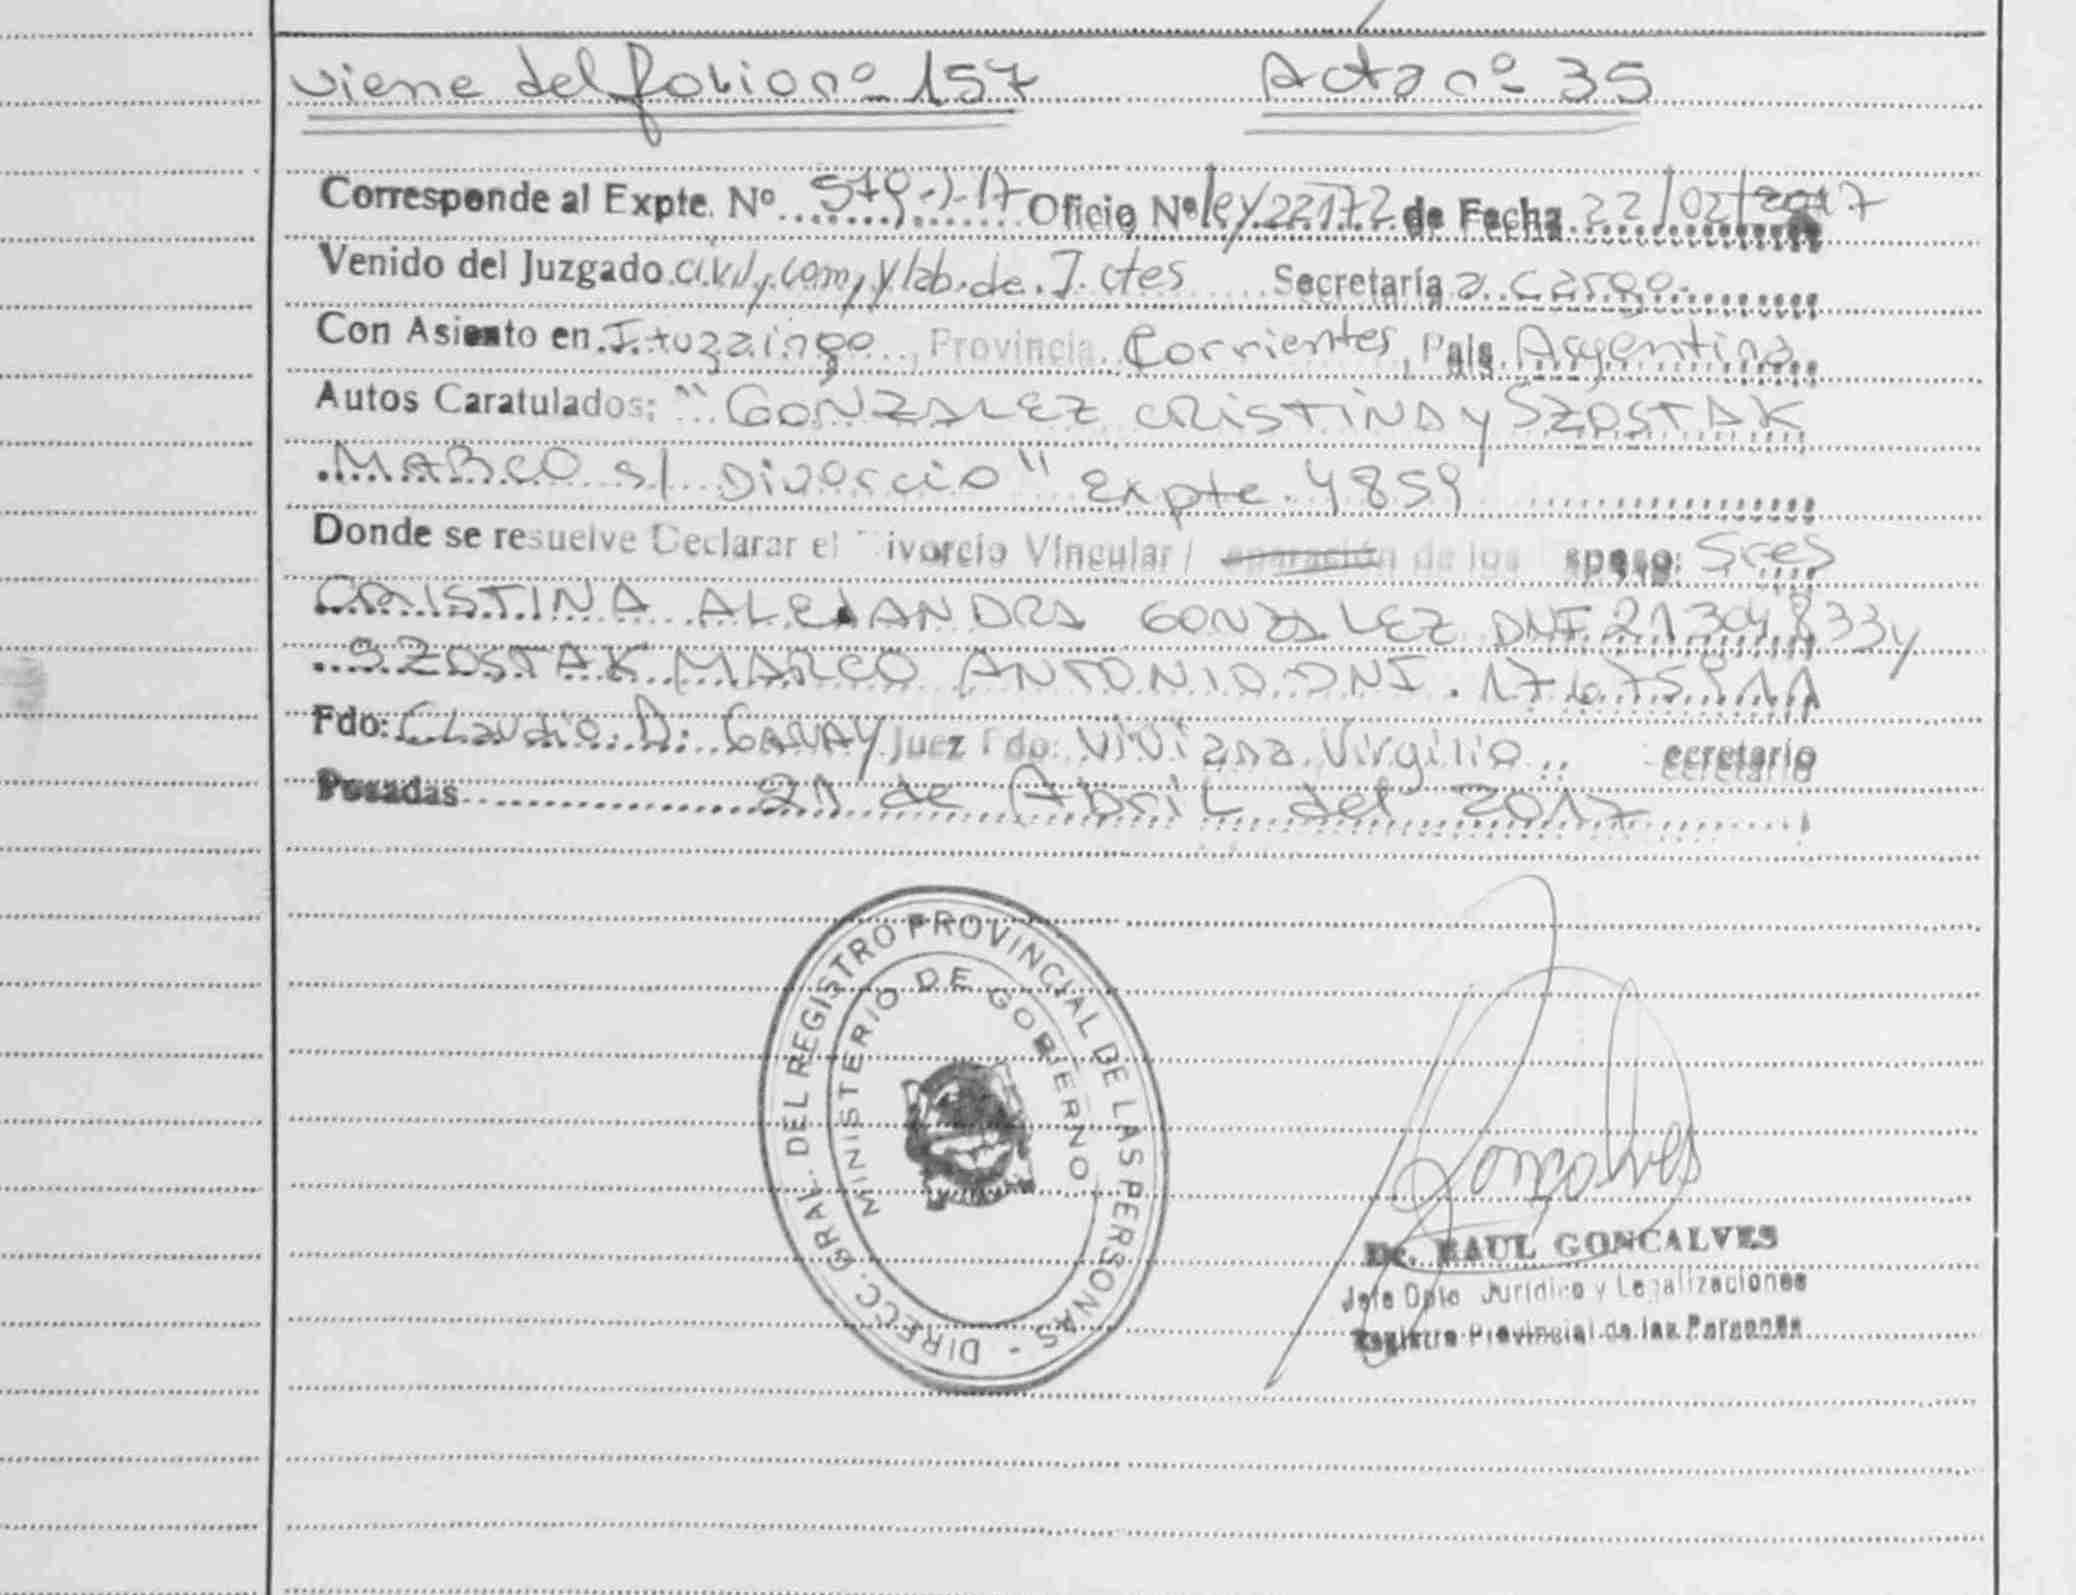 viene del folio nº 157 Acta nº 35
Corresponde al Expte. Nº 579-J-17 Oficio Nº ley 22172 de Fecha 22/02/2017
Venido del Juzgado civil, com, y lab. de I. ctes Secretaría a cargo.
Con Asiento en Ituzaingo, Provincia Corrientes, País Argentina
Autos Caratulados: "GONZALEZ CRISTINA y SZOSTAK
MARCO s/ Divorcio" Expte. 4859
Donde se resuelve Declarar el ivorcio Vincular / eparación de los sposo: Sres
CRISTINA ALEJANDRA GONZALEZ DNI 21304833 y
SZOSTAK MARCO ANTONIO DNI. 17675911
Fdo: Claudio D. Juez Fdo: Viviana Virgilio ecretario
Posadas 21 de Abril del 2017
DIRECC. GRAL. DEL REGISTRO PROVINCIAL DE LAS PERSONAS -
MINISTERIO DE GOBIERNO
Goncalves
Dr. RAUL GONCALVES
Jefe Dpto Jurídico y Legalizaciones
Registro Provincial de las Personas